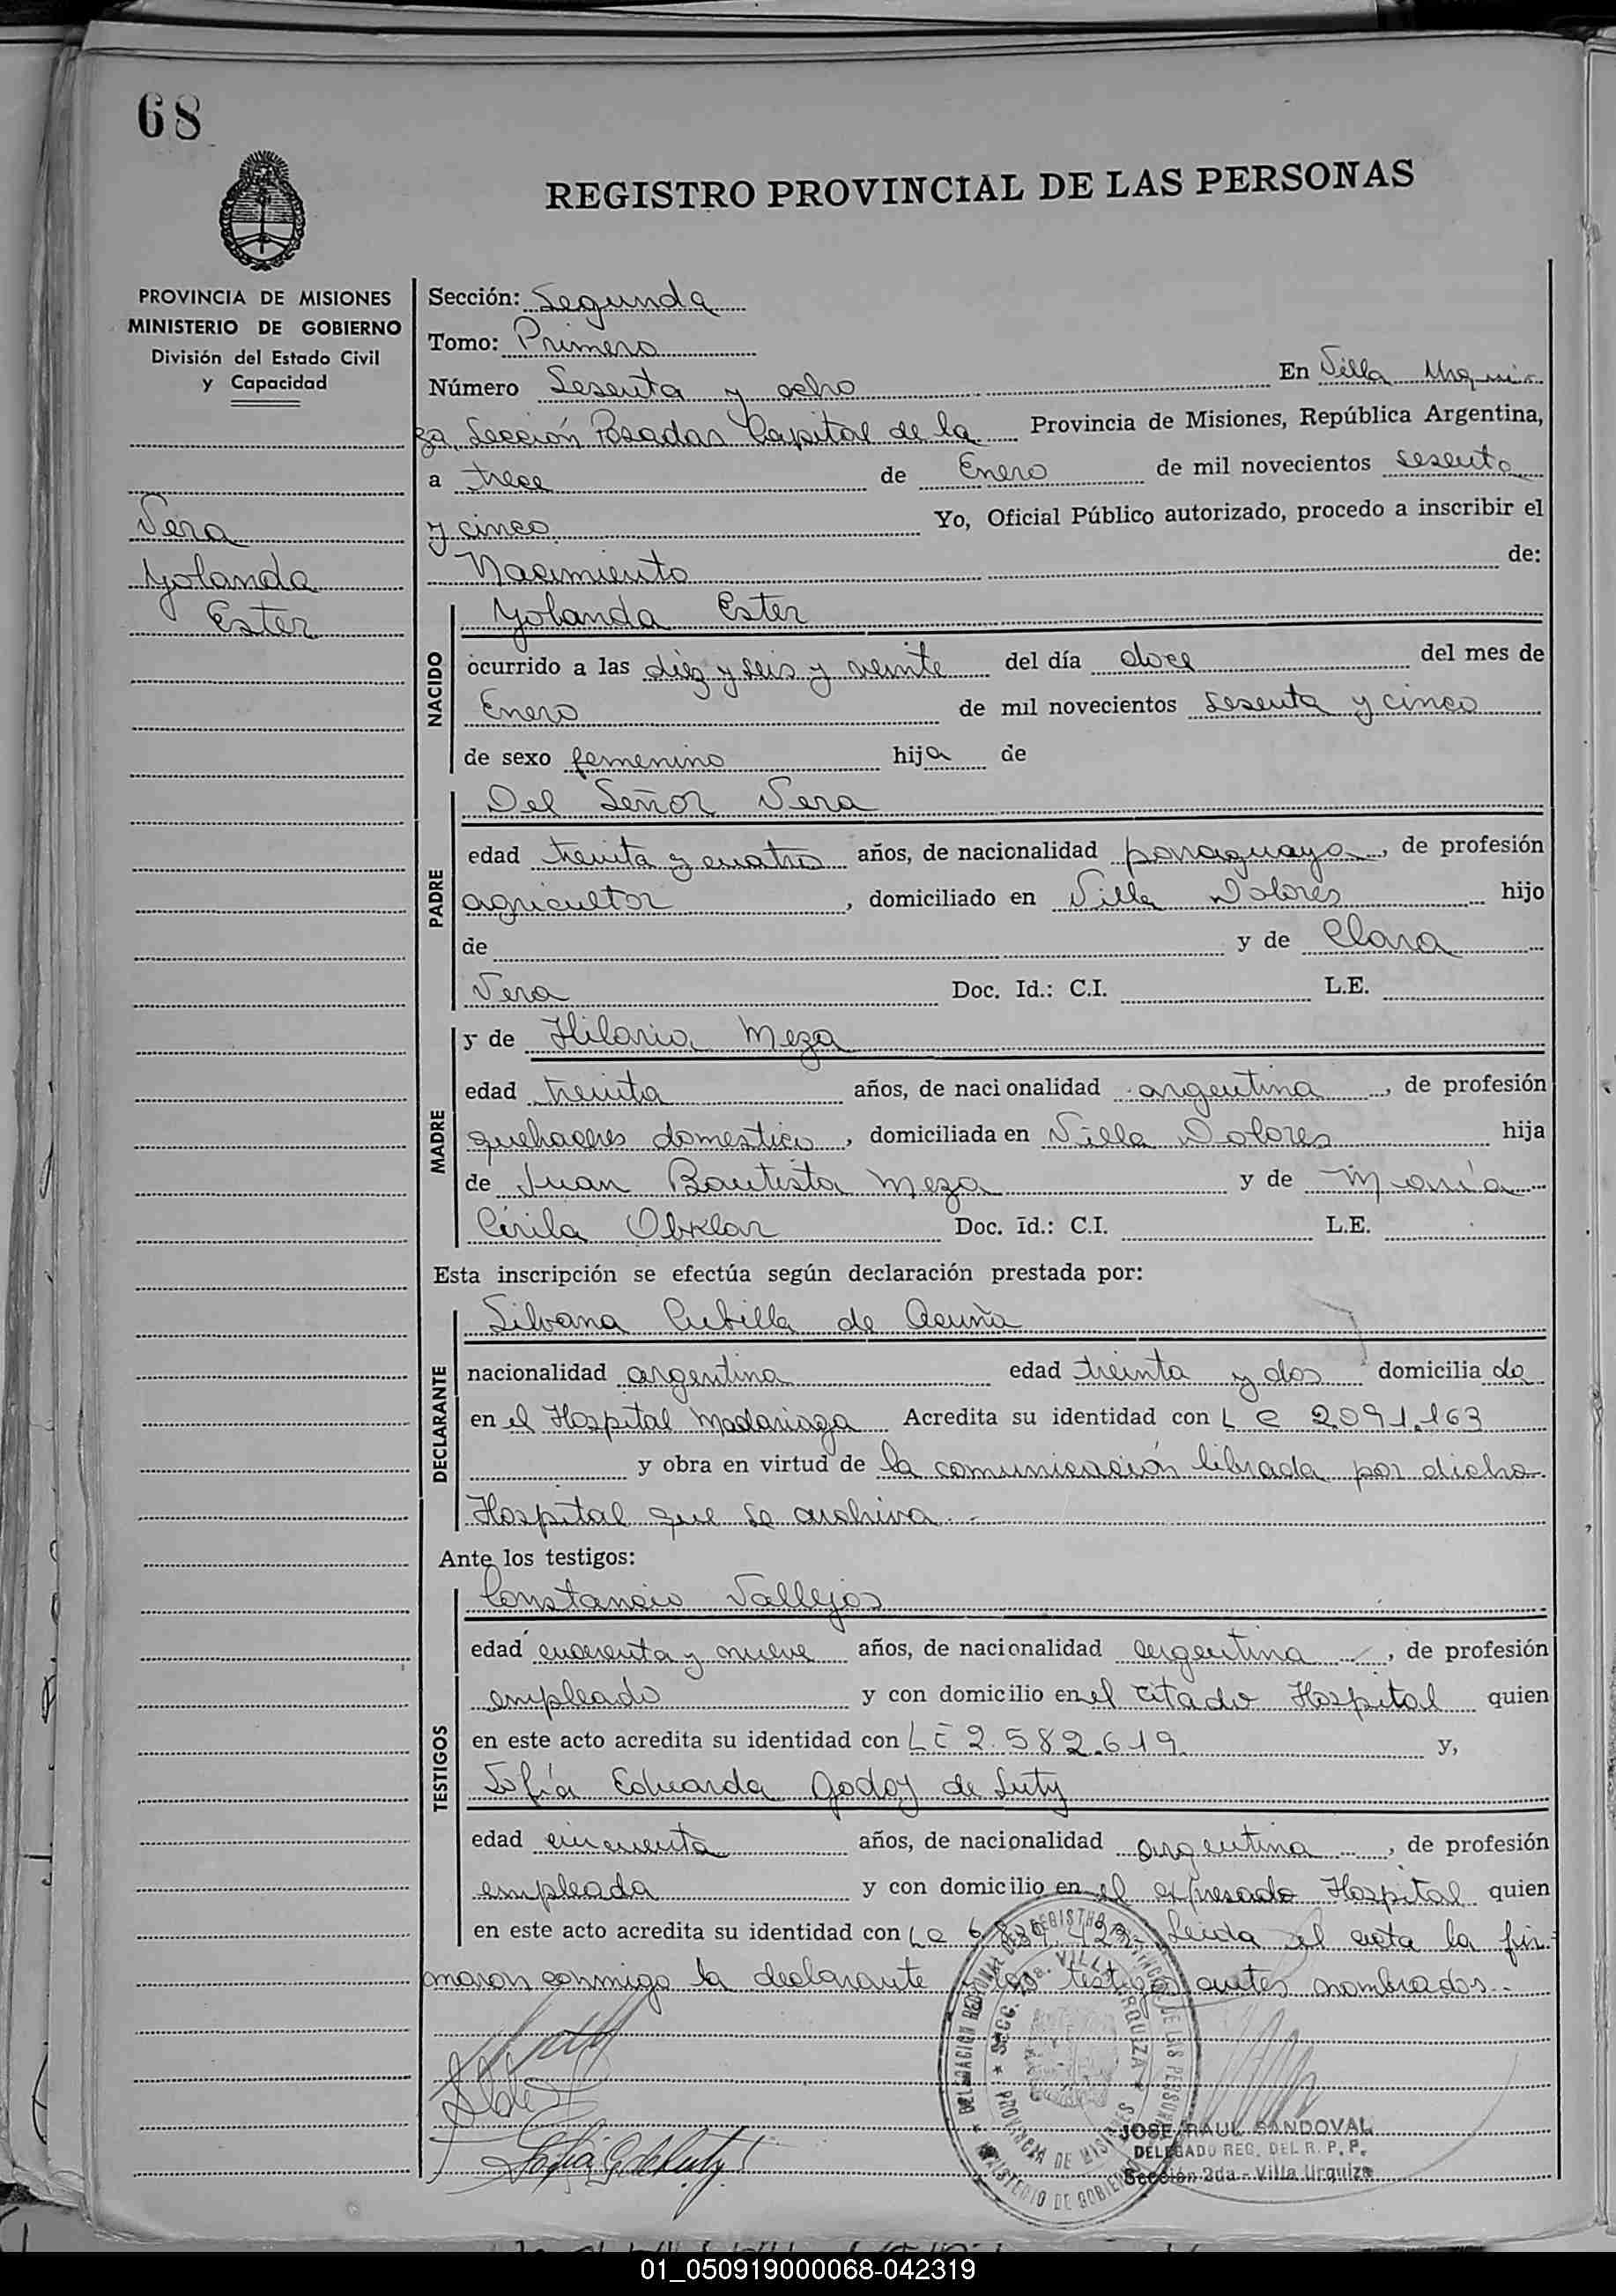 68
REGISTRO PROVINCIAL DE LAS PERSONAS
PROVINCIA DE MISIONES
MINISTERIO DE GOBIERNO
División del Estado Civil
y Capacidad
Vera
Yolanda
Ester
Sección: Segunda
Tomo: Primero
Número Sesenta y ocho En Villa Urqui
za Sección Posadas Capital de la Provincia de Misiones, República Argentina,
a trece de Enero de mil novecientos sesenta
y cinco Yo, Oficial Público autorizado, procedo a inscribir el
Nacimiento de:
NACIDO
Yolanda Ester
ocurrido a las diez y seis y veinte del día doce del mes de
Enero de mil novecientos sesenta y cinco
de sexo femenino hija de
PADRE
Del Señor Vera
edad treinta y cuatro años, de nacionalidad paraguaya, de profesión
agricultor, domiciliado en Villa Dolores hijo
de y de Clara
Vera Doc. Id.: C.I. L.E.
MADRE
y de Hilaria Meza
edad treinta años, de nacionalidad argentina, de profesión
quehaceres domestico, domiciliada en Villa Dolores hija
de Juan Bautista Meza y de María
Cirila Obrelar Doc. Id.: C.I. L.E.
Esta inscripción se efectúa según declaración prestada por:
DECLARANTE
Silvana Cubilla de Acuña
nacionalidad argentina edad treinta y dos domicilia da
en el Hospital Madariaga Acredita su identidad con L C 2.091.163
y obra en virtud de la comunicación librada por dicho
Hospital que se archiva.-
Ante los testigos:
TESTIGOS
Constancio Vallejos
edad cuarenta y nueve años, de nacionalidad argentina, de profesión
empleado y con domicilio en el citado Hospital quien
en este acto acredita su identidad con L E 2.582.619 y,
Sofía Eduarda Godoy de Luty
edad cincuenta años, de nacionalidad argentina, de profesión
empleada y con domicilio en el expresado Hospital quien
en este acto acredita su identidad con L C Leída el acta la fir
maron conmigo la declarante y los testigos antes nombrados.-
DELEGACION REGIONAL DEL REGISTRO PROVINCIAL DE LAS PERSONAS
SECC. 2da. VILLA URQUIZA
PROVINCIA DE MISIONES
MINISTERIO DE GOBIERNO
JOSE RAUL SANDOVAL
DELEGADO REG. DEL R. P. P.
Sección 2da - Villa Urquiza
Sofía G de Luty
01_050919000068-042319